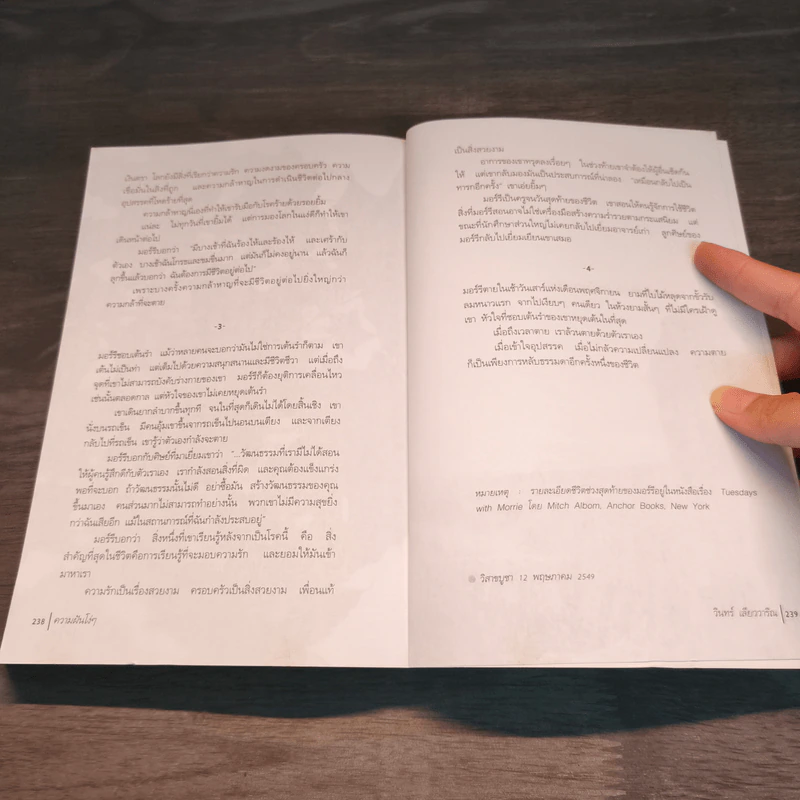 เงินตรา โลกยังมีสิ่งที่เรียกว่าความรัก ความงดงามของครอบครัว ความ
เชื่อมั่นในสิ่งที่ถูก และความกล้าหาญในการดำเนินชีวิตไปกลาง
อุปสรรคที่โหดร้ายที่สุด
ความกล้าหาญนี่เองที่ทำให้เขารับมือกับโรคร้ายด้วยรอยยิ้ม
แน่ละ ไม่ทุกวันที่เขายิ้มได้ แต่การมองโลกในแง่ดีก็ทำให้เขา
เดินหน้าต่อไป
มอร์รีบอกว่า "มีบางเช้าที่ฉันร้องไห้และร้องไห้ และเศร้ากับ
ตัวเอง บางเช้าฉันโกรธและขมขื่นมาก แต่มันก็ไม่คงอยู่นาน แล้วฉันก็
ลุกขึ้นแล้วบอกว่า ฉันต้องการมีชีวิตอยู่ต่อไป"
เพราะบางครั้งความกล้าหาญที่จะมีชีวิตอยู่ต่อไปยิ่งใหญ่กว่า
ความกล้าที่จะตาย
-3-
มอร์รีชอบเต้นรำ แม้ว่าหลายคนจะบอกว่ามันไม่ใช่การเต้นรำก็ตาม เขา
เต้นไม่เป็นท่า แต่เต็มไปด้วยความสนุกสนานและมีชีวิตชีวา แต่เมื่อถึง
จุดที่เขาไม่สามารถบังคับร่างกายของเขา มอร์รีก็ต้องยุติการเคลื่อนไหว
เช่นนั้นตลอดกาล แต่หัวใจของเขาไม่เคยหยุดเต้นรำ
เขาเดินยากลำบากขึ้นทุกที จนในที่สุดก็เดินไม่ได้โดยสิ้นเชิง เขา
นั่งบนรถเข็น มีคนอุ้มเขาขึ้นจากรถเข็นไปนอนบนเตียง และจากเตียง
กลับไปที่รถเข็น เขารู้ว่าตัวเองกำลังจะตาย
มอร์รีบอกกับศิษย์ที่มาเยี่ยมเขาว่า "...วัฒนธรรมที่เรามีไม่ได้สอน
ให้ผู้คนรู้สึกดีกับตัวเราเอง เรากำลังสอนสิ่งที่ผิด และคุณต้องแข็งแกร่ง
พอที่จะบอก ถ้าวัฒนธรรมนั้นไม่ดี อย่าซื้อมัน สร้างวัฒนธรรมของคุณ
ขึ้นมาเอง คนส่วนมากไม่สามารถทำอย่างนั้น พวกเขาไม่มีความสุขยิ่ง
กว่าฉันเสียอีก แม้ในสถานการณ์ที่ฉันกำลังประสบอยู่"
มอร์รีบอกว่า สิ่งหนึ่งที่เขาเรียนรู้หลังจากเป็นโรคนี้ คือ สิ่ง
สำคัญที่สุดในชีวิตคือการเรียนรู้ที่จะมอบความรัก และยอมให้มันเข้า
มาหาเรา
ความรักเป็นเรื่องสวยงาม ครอบครัวเป็นสิ่งสวยงาม เพื่อนแท้
238 ความฝันโง่ๆ
เป็นสิ่งสวยงาม
อาการของเขาทรุดลงเรื่อยๆ ในช่วงท้ายเขาจำต้องให้ผู้อื่นเช็ดก้น
ให้ แต่เขากลับมองมันเป็นประสบการณ์ที่น่าลอง "เหมือนกลับไปเป็น
ทารกอีกครั้ง" เขาเอ่ยยิ้มๆ
มอร์รีเป็นครูจนวันสุดท้ายของชีวิต เขาสอนให้คนรู้จักการใช้ชีวิต
สิ่งที่มอร์รีสอนอาจไม่ใช่เครื่องมือสร้างความร่ำรวยตามกระแสนิยม แต่
ขณะที่นักศึกษาส่วนใหญ่ไม่เคยกลับไปเยี่ยมอาจารย์เก่า ลูกศิษย์ของ
มอร์รีกลับไปเยี่ยมเยียนเขาเสมอ
-4-
มอร์รีตายในเช้าวันเสาร์แห่งเดือนพฤศจิกายน ยามที่ใบไม้หลุดจากขั้วรับ
ลมหนาวแรก จากไปเงียบๆ คนเดียว ในห้วงยามสั้นๆ ที่ไม่มีใครเฝ้าดู
เขา หัวใจที่ชอบเต้นรำของเขาหยุดเต้นในที่สุด
เมื่อถึงเวลาตาย เราล้วนตายด้วยตัวเราเอง
เมื่อเข้าใจอุปสรรค เมื่อไม่กลัวความเปลี่ยนแปลง ความตาย
ก็เป็นเพียงการหลับธรรมดาอีกครั้งหนึ่งของชีวิต
หมายเหตุ : รายละเอียดชีวิตช่วงสุดท้ายของมอร์รีอยู่ในหนังสือเรื่อง Tuesdays
with Morrie โดย Mitch Albom, Anchor Books, New York
วิสาขบูชา 12 พฤษภาคม 2549
วินทร์ เลียววาริณ 239